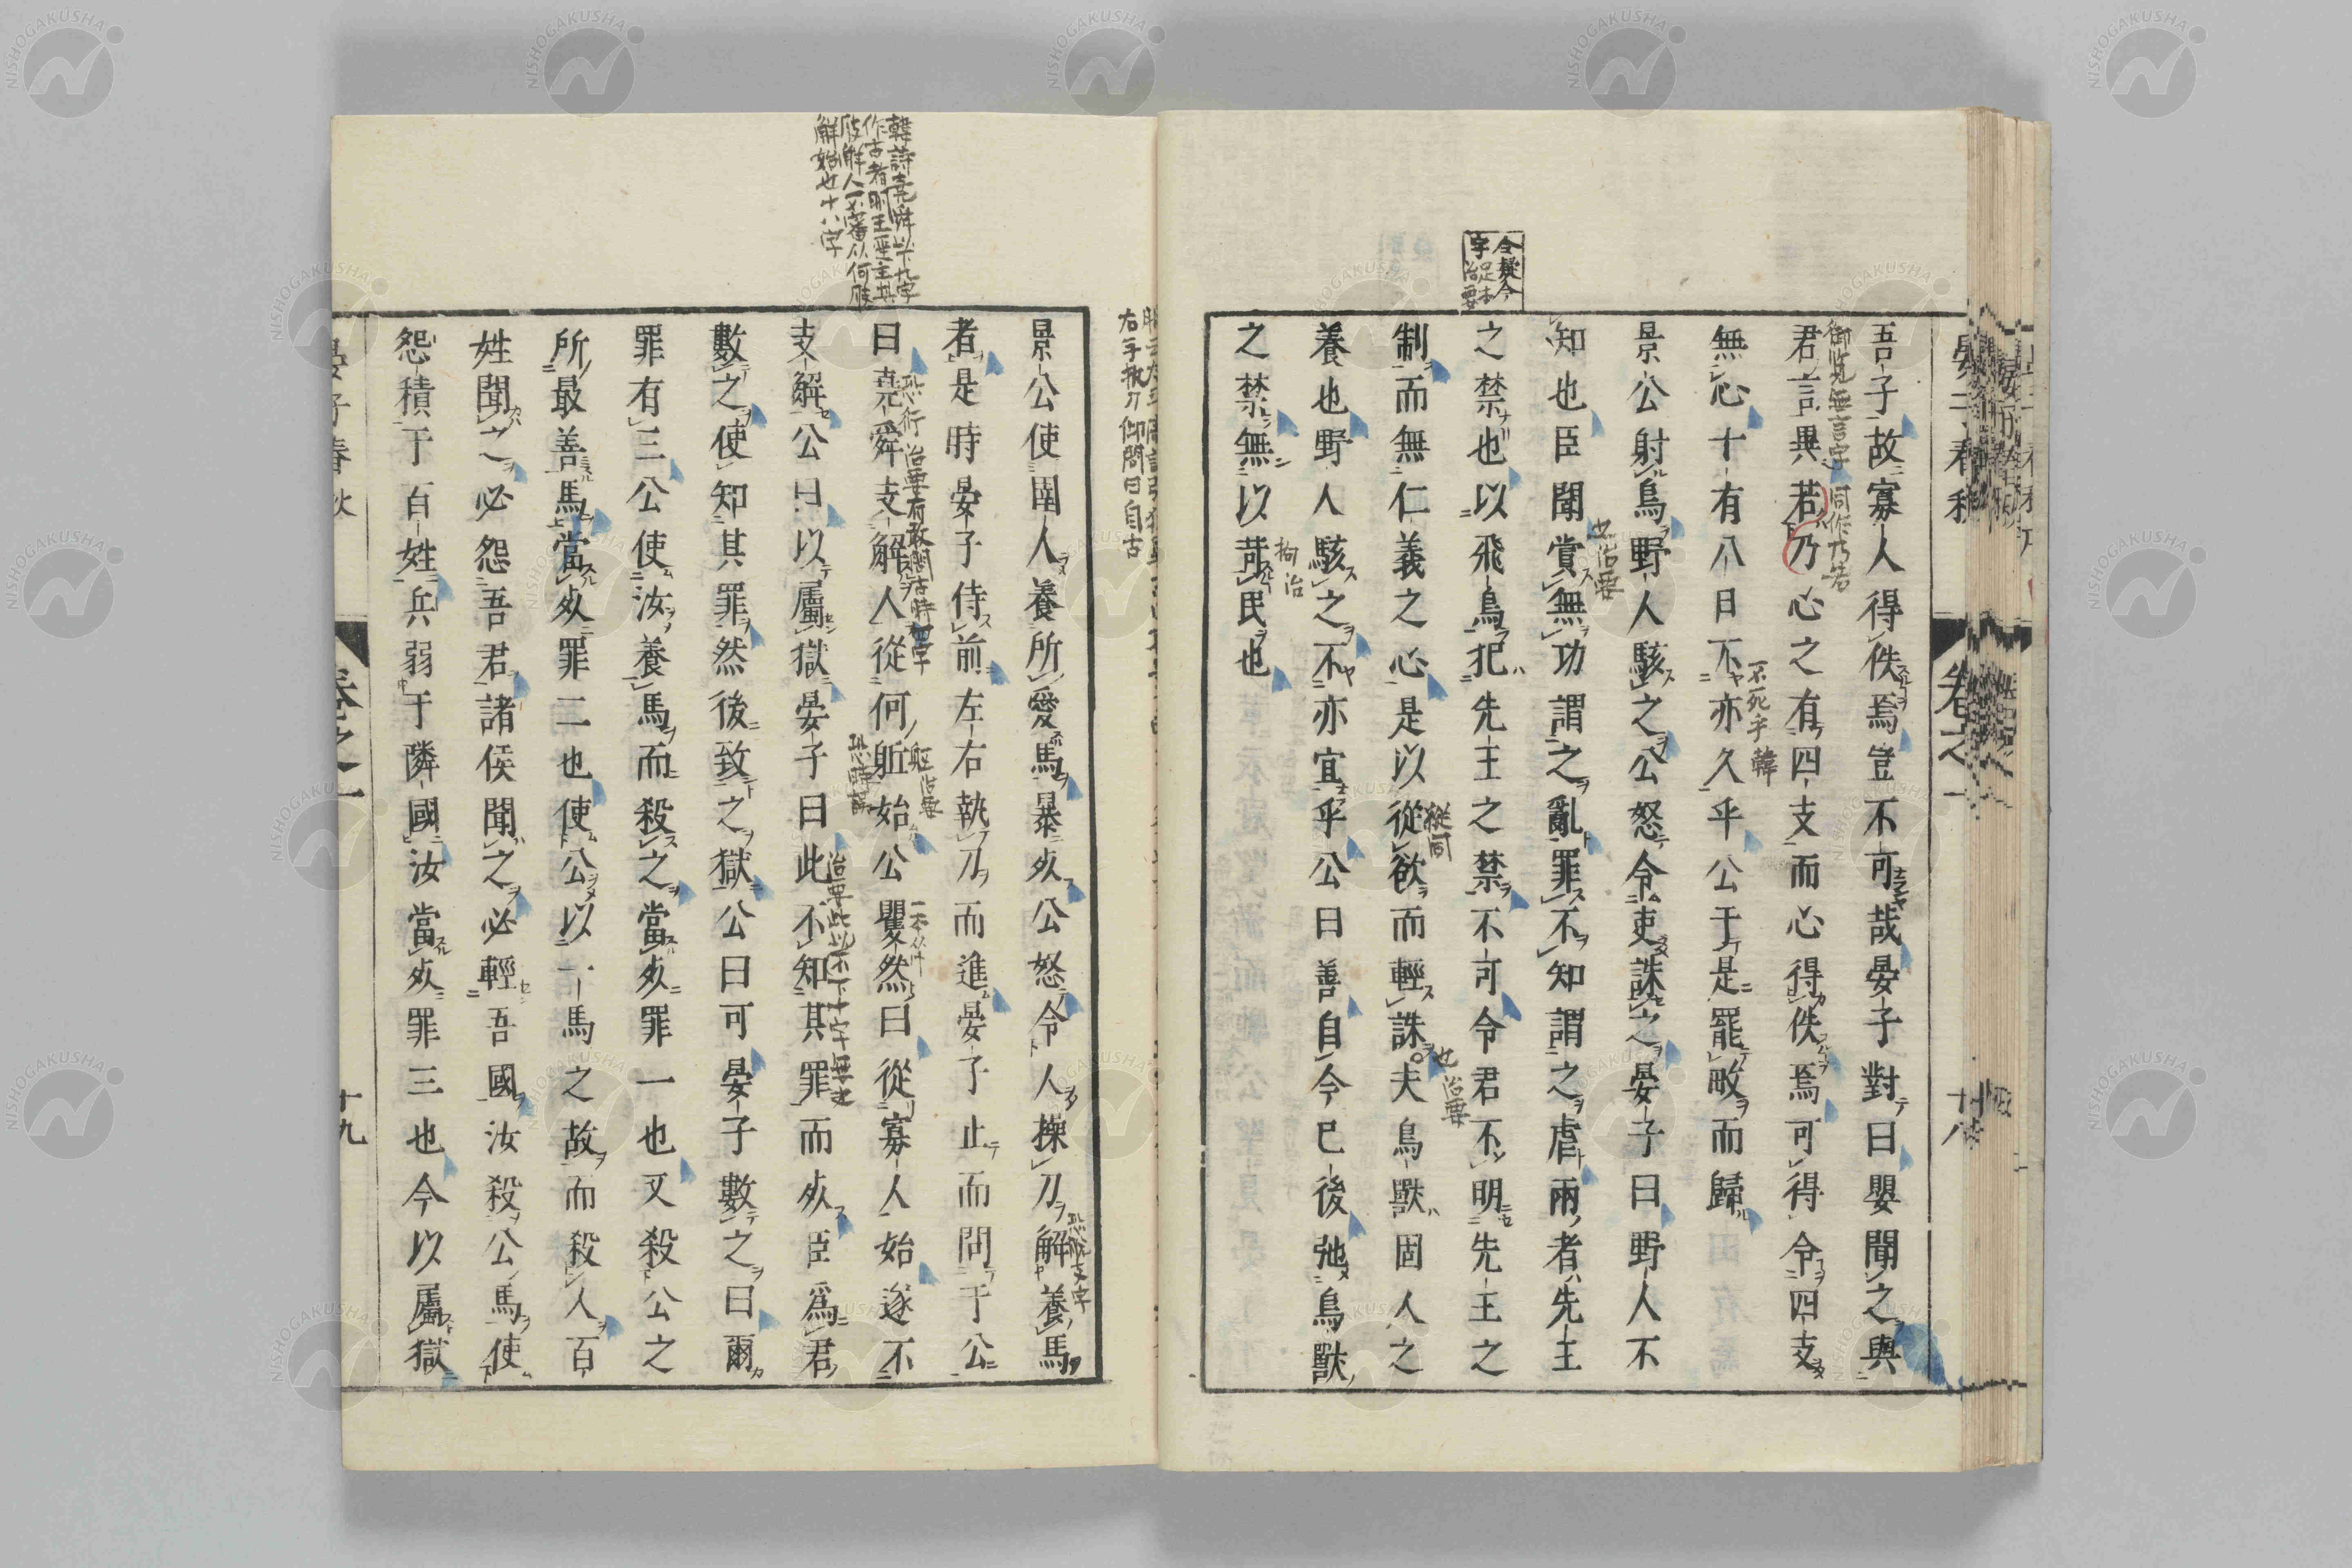 吾子故寡人得佚焉豈不可哉晏子對曰嬰聞之與
君言異若乃心之有四支而心得佚焉可得令四支
無心十有八日不亦久乎公于是罷畋而歸
景公射鳥野人駭之公怒令吏誅之晏子曰野人不
知也臣聞賞無功謂之亂罪不知謂之虐兩者先王
之禁也以飛鳥犯先王之禁不可令君不明先王之
制而無仁義之心是以從欲而輕誅夫鳥獸固人之
養也野人駭之不亦宜乎公曰善自今已後弛鳥獸
之禁無以苛民也
景公使圉人養所愛馬暴死公怒令人操刀解養馬
者是時晏子侍前左右執刀而進晏子止而問于公
曰堯舜支解人從何軀始公矍然曰從寡人始遂不
支解公曰以屬獄晏子曰此不知其罪而死臣爲君
數之使知其罪然後致之獄公曰可晏子數之曰爾
罪有三公使汝養馬而殺之當死罪一也又殺公之
所最善馬當死罪二也使公以一馬之故而殺人百
姓聞之必怨吾君諸侯聞之必輕吾國汝殺公馬使
怨積于百姓兵弱于隣國汝當死罪三也今以屬獄
御览無言字
同作乃若
不死乎 韓
也治要
今疑令
字
足本
治要
從同
也治要
拘治
右手執刀仰問曰自古
恐脱支字
韓詩堯舜以下九字
解始也十八字
治要有敢問古時四字
軀治要
一本从忄
治要此以不下十字無之
晏子春秋
卷之一
十八
十九